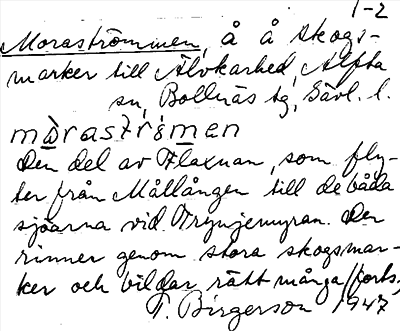 1-2
Moraströmmen, å å skogs-
marker till Älvkarhed, Alfta
sn, Bollnäs tg, Gävl. l.
den del av Flaxnan, som fly-
ter från Mållången till de båda
sjöarna vid Trynjemyran. Den
rinner genom stora skogsmar-
ker och bildar rätt många//forts.,
T. Birgerson 1947